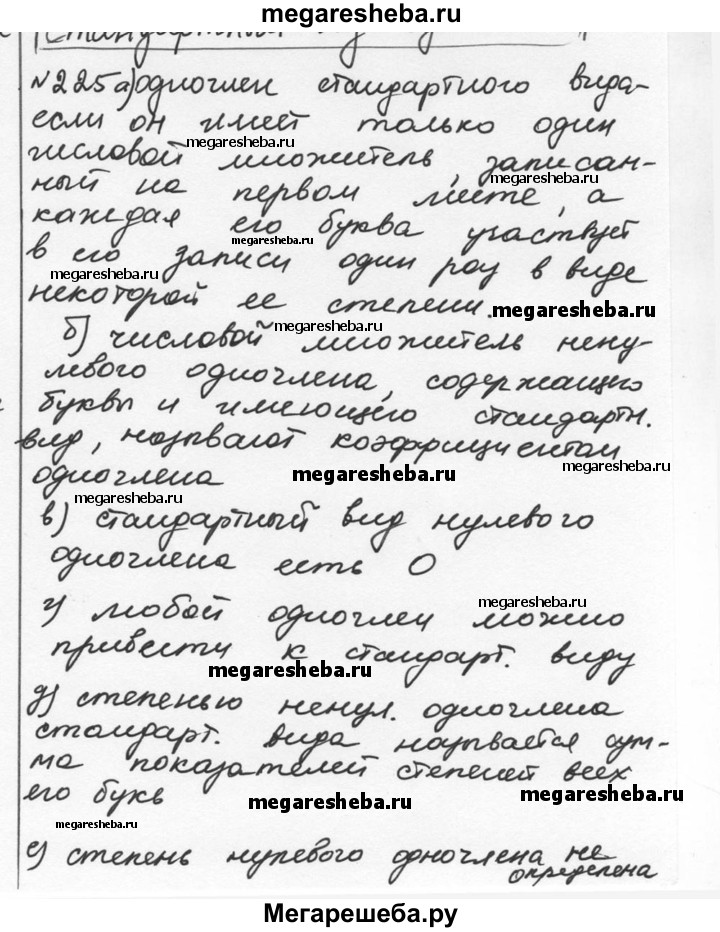 megaresheba.ru
№225 а) одночлен стандартного вида-
если он имеет только один
megaresheba.ru
числовой множитель, записан-
megaresheba.ru
ный на первом месте, а
каждая его буква участвует
megaresheba.ru
в его записи один раз в виде
megaresheba.ru
некоторой ее степени.
megaresheba.ru
megaresheba.ru
б) числовой множитель нену-
левого одночлена, содержащего
буквы и имеющего стандартн.
вид, называют коэффициентом
megaresheba.ru
одночлена
megaresheba.ru
megaresheba.ru
в) стандартный вид нулевого
одночлена есть 0
megaresheba.ru
г) любой одночлен можно
привести к стандарт. виду
megaresheba.ru
д) степенью ненул. одночлена
стандарт. вида называется сум-
ма показателей степеней всех
его букв
megaresheba.ru
megaresheba.ru
megaresheba.ru
е) степень нулевого одночлена не
определена
Мегарешеба.ру